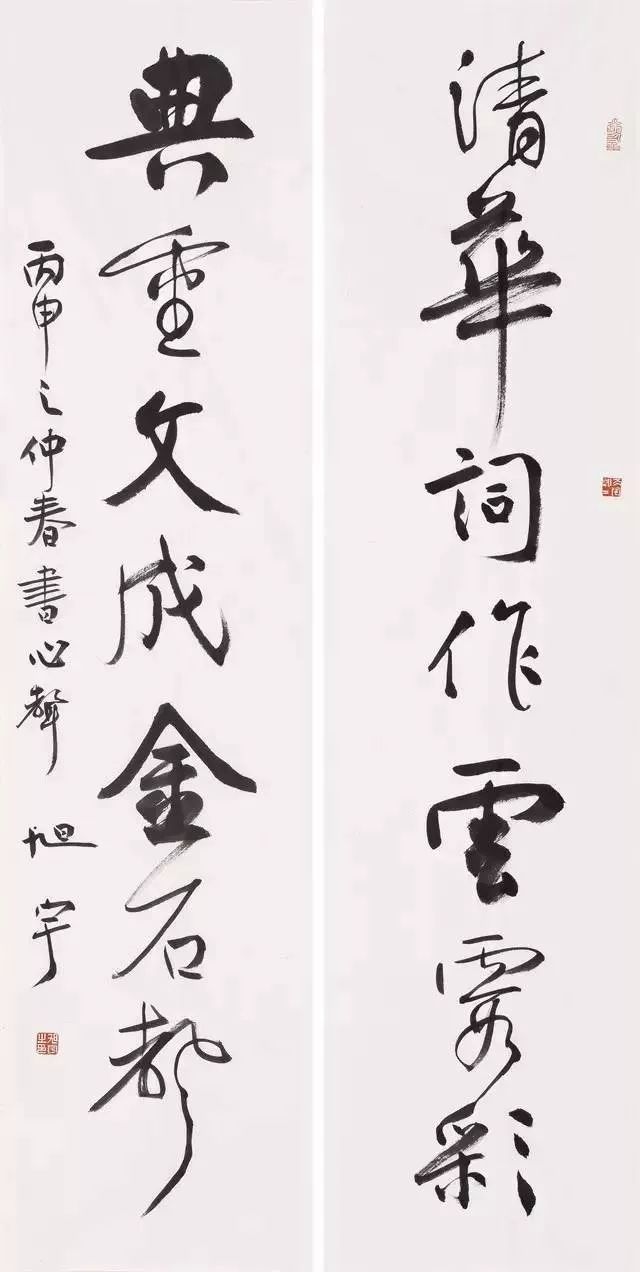 清華詞作雲霞彩
典重文成金石聲
丙申之仲春書心聲 旭宇